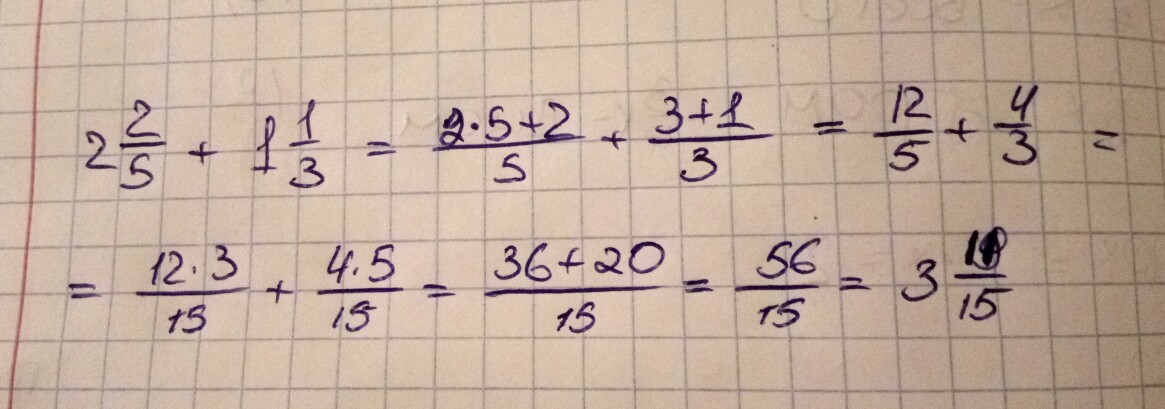 2 2/5 + 1 1/3 = (2·5+2)/5 + (3+1)/3 = 12/5 + 4/3 =
= (12·3)/15 + (4·5)/15 = (36+20)/15 = 56/15 = 3 11/15